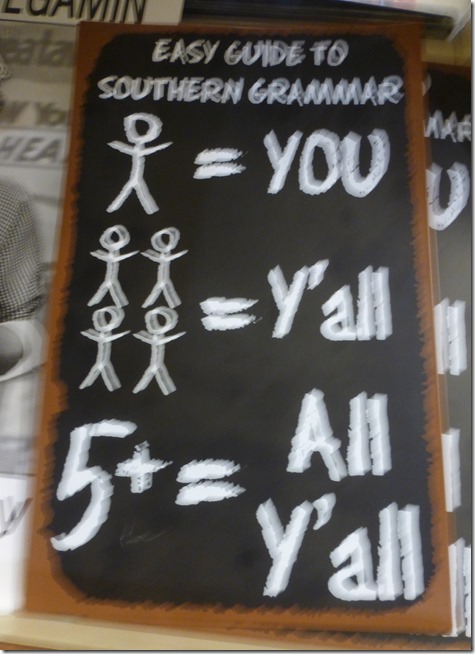 EASY GUIDE TO
SOUTHERN GRAMMAR
= YOU
= Y'all
5+ = All
Y'all